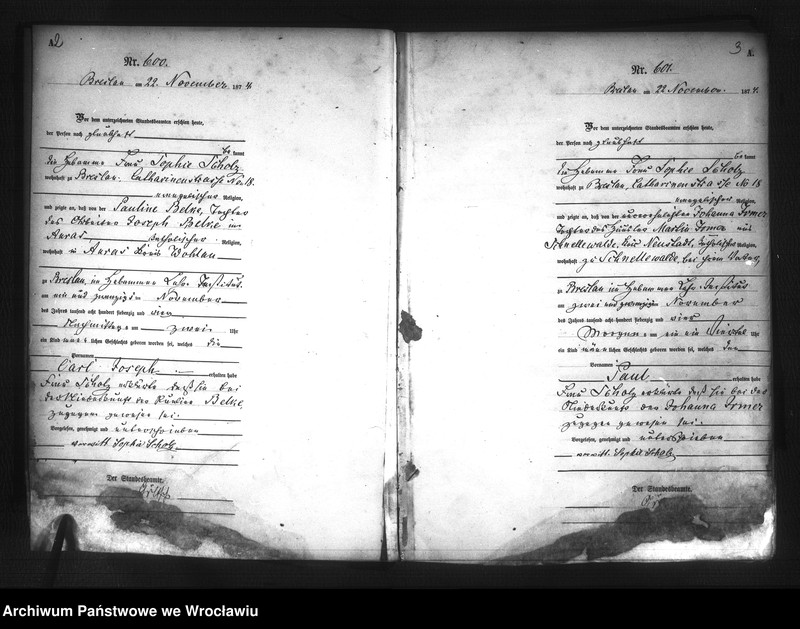 A2
Nr. 600.
Breslau am 22. November 1874
Vor dem unterzeichneten Standesbeamten erschien heute,
der Person nach
be kannt
die Hebamme Frau Sophie Scholz
wohnhaft zu Breslau, Catharinenstraße No. 18.
evangelischer Religion,
und zeigte an, daß von der Pauline Belke, Tochter
des Joseph Belke in
Auras katholischer Religion,
wohnhaft in Auras Kreis Wohlau
zu Breslau, im Hebammen Lehr Institut
am ein und zwanzigsten November
des Jahres tausend acht hundert siebenzig und vier
Nachmittags um zwei Uhr
ein Kind lichen Geschlechts geboren worden sei, welches die
Vornamen
Carl Joseph erhalten habe
Frau Scholz erklärte daß sie bei
der Niederkunft der Pauline Belke,
zugegen gewesen sei.
Vorgelesen, genehmigt und unterschrieben
verwitt. Sophie Scholz.
Der Standesbeamte.
3 A.
Nr. 601.
Breslau am 22 November 1874.
Vor dem unterzeichneten Standesbeamten erschien heute,
der Person nach
be kannt
die Hebamme Frau Sophie Scholz
wohnhaft zu Breslau, Catharinenstraße No 18
evangelischer Religion,
und zeigte an, daß von der unverehelichten Johanna Irmer
Tochter des Häusler Martin Irmer aus
Schnellewalde, Kreis Neustadt, katholischer Religion,
wohnhaft zu Schnellewalde, bei ihrem Vater,
zu Breslau im Hebammen Lehr Institut
am zwei und zwanzigsten November
des Jahres tausend acht hundert siebenzig und vier
Morgens um ein ein Viertel Uhr
ein Kind männ lichen Geschlechts geboren worden sei, welches den
Vornamen
Paul erhalten habe
Frau Scholz erklärte daß sie bei der
Niederkunft der Johanna Irmer
zugegen gewesen sei.
Vorgelesen, genehmigt und unterschrieben
verwitt. Sophie Scholz
Der Standesbeamte.
Archiwum Państwowe we Wrocławiu